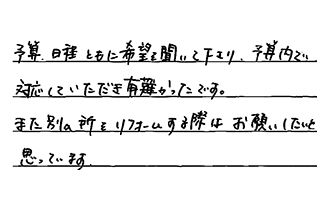 予算、日程ともに希望を聞いて下さり、予算内で
対応していただき有難かったです。
また別の所をリフォームする際はお願いしたいと
思っています。